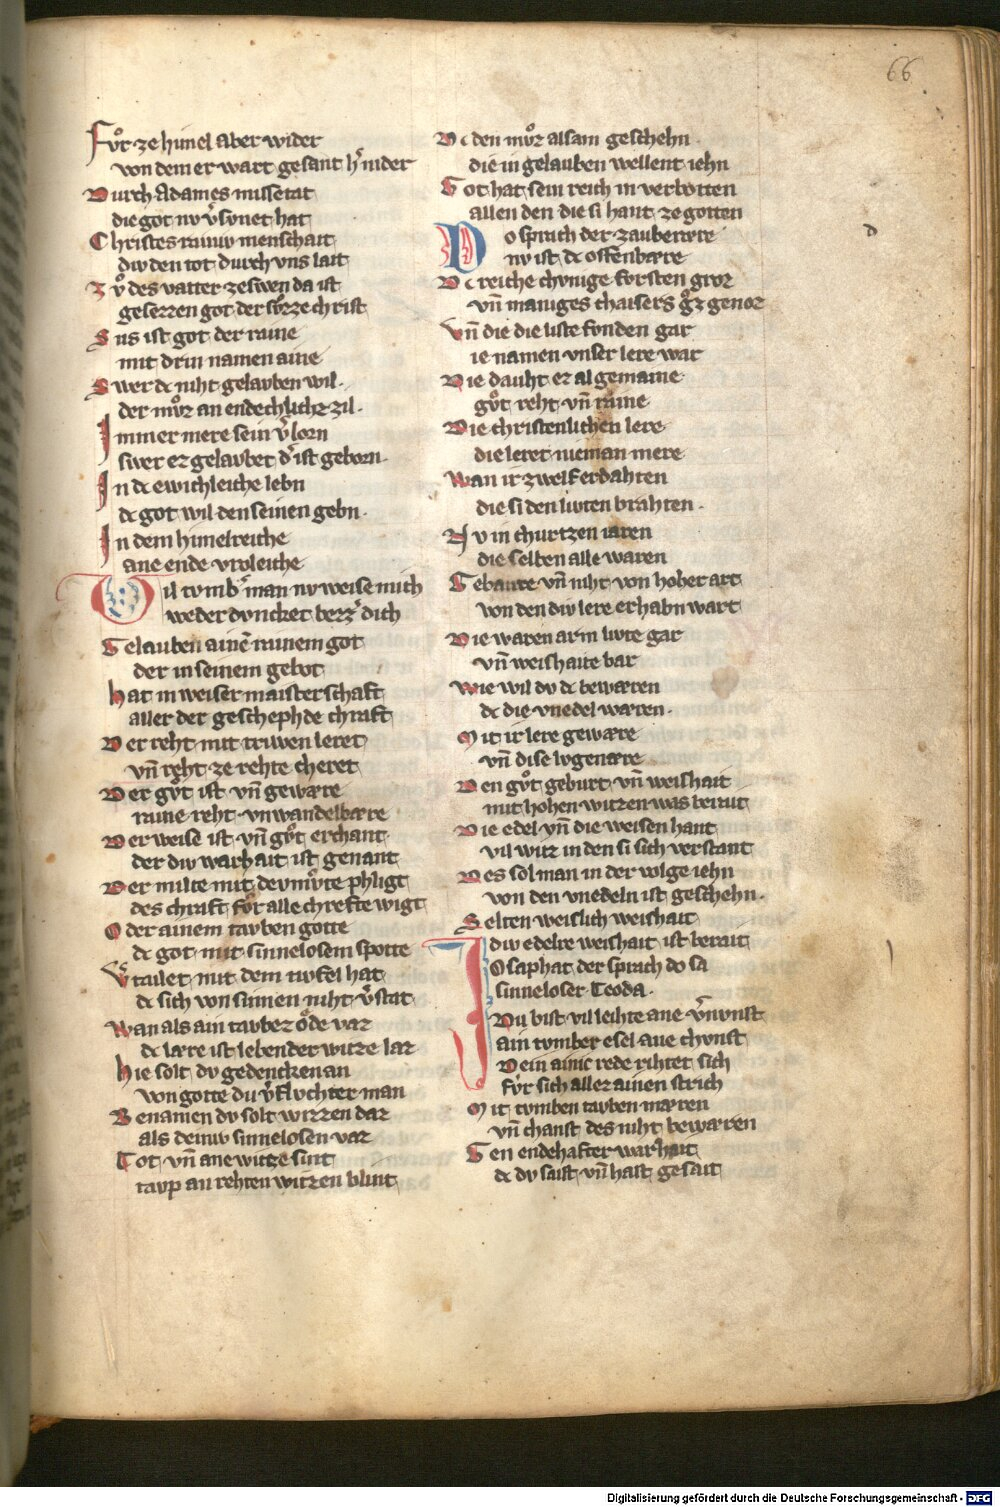 66
Fůr ze himel aber wider
von dem er wart gesant h̉nider
Durch Adames missetat
die got nv v̉svnet hat
Christes rainiv menschait
div den tot durch vns lait
Zv̊ des vatter zeswen da ist
gesezzen got der sv̊zze christ
Sus ist got der raine
mit drin namen aine
Swer dc niht gelauben wil
der mv̊z an endechlich zil
Immer mere sein v̉lorn
swer ez gelaubet d̉ ist geborn
In dc ewichleiche lebn
dc got wil den seinen gebn
In dem himelreiche
ane ende vroleiche
Vil tvmb̉ man nv weise mich
weder dvncket bezz̉ dich
Gelauben ainē rainem got
der in seinem gebot
hat in weiser maisterschaft
aller der geschephde chraft
Der reht mit triwen leret
vn̄ reht ze rehte cheret
Der gv̊t ist vn̄ gewære
raine reht vnwandelbære
Der weise ist vn̄ gv̊t erchant
der div warhait ist genant
Der milte mit devmv̊te phligt
des chraft fv̊r alle chrefte wigt
Oder ainem tauben gotte
dc got mit sinnelosem spotte
V̉tailet mit dem tivfel hat
dc sich von sinnen niht v̉stat
Wan als ain tauber ôde var
dc lære ist lebender witze lar
hie solt dv gedencken an
von gotte du v̉flvchter man
Benamen dv solt wizzen daz
als deiniv sinnelosen vaz
Tot vn̄ ane witze sint
tavp an rehten witzen blint
Dc den mv̊z alsam geschehn
die in gelauben wellent iehn
Got hat sein reich in verbotten
allen den die si hant ze gotten
Do sprach der zauberære
nv ist dc offenbære
Dc reiche chvnige fvrsten groz
vn̄ maniges chaisers g̊z genoz
Vn̄ die die liste fonden gar
ie namen vnser lere war
Die dauht ez al gemaine
gv̊t reht vn̄ raine
Die christenlichen lere
die leret nieman mere
Wan ir zwelf erdahten
die si den livten brahten
Nv in churtzen iaren
die selben alle waren
Gebaure vn̄ niht von hoher art
von den div lere erhabn wart
Die waren arm livte gar
vn̄ weishaite bar
Wie wil dv dc bewæren
dc die vnedel wæren
Mit ir lere gewære
vn̄ dise lvgenære
Den gv̊t geburt vn̄ weishait
mit hohen witzen was berait
Die edel vn̄ die weisen hant
vil witz in den si sich verstant
Des sol man in der volge iehn
von den vnedeln ist geschehn
Selten weislich weishait
div edelre weishait ist berait
Josaphat der sprach do sa
sinneloser Teoda
Du bist vil leihte ane v̉nvnst
ain tvmber esel ane chvnst
Dein ainic rede rihtet sich
fvr sich aller ainen strich
Mit tvmben tauben mæren
vn̄ chanst des niht bewæren
Gen endehafter warhait
dc dv saist vn̄ hast gesait
d
Digitalisierung gefördert durch die Deutsche Forschungsgemeinschaft - DFG